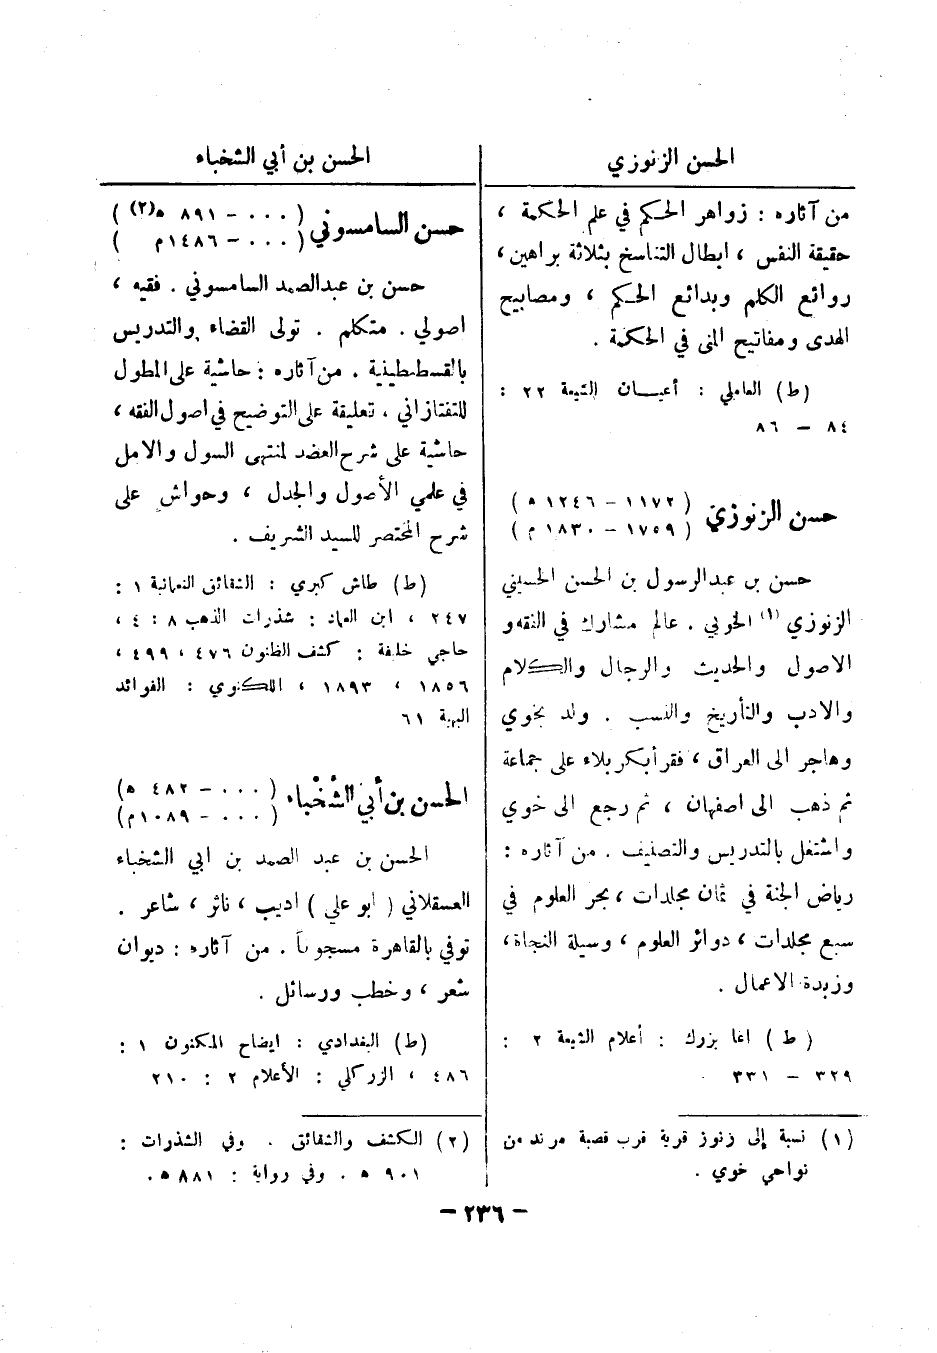 الحسن الزنوزي
من آثاره : زواهر الحكم في علم الحكمة ،
حقيقة النفس ، ابطال التناسخ بثلاثة براهين ،
روائع الكلم وبدائع الحكم ، ومصابيح
الهدى ومفاتيح المنى في الحكمة .
(ط) العاملي : أعيان الشيعة ٢٢ :
٨٤ – ٨٦
حسن الزنوزي ( ١١٧٢ – ١٢٤٦ ه )
( ١٧٥٩ – ١٨٣٠ م )
حسن بن عبدالرسول بن الحسن الحسيني
الزنوزي (١) الخوئي . عالم مشارك في الفقه و
الاصول والحديث والرجال والكلام
والادب والتأريخ والنسب . ولد بخوي
وهاجر الى العراق ، فقرأ بكربلاء على جماعة
ثم ذهب الى اصفهان ، ثم رجع الى خوي
واشتغل بالتدريس والتصنيف . من آثاره :
رياض الجنة في ثمان مجلدات ، بحر العلوم في
سبع مجلدات ، دوائر العلوم ، وسيلة النجاة ،
وزبدة الاعمال .
( ط ) اغا بزرك : أعلام الشيعة ٢ :
٣٢٩ – ٣٣١
(١) نسبة إلى زنوز قرية قرب قصبة مرند من
نواحي خوي .
الحسن بن أبي الشخباء
حسن السامسوني ( ٠٠٠ – ٨٩١ ه(٢) )
( ٠٠٠ – ١٤٨٦م )
حسن بن عبدالصمد السامسوني . فقيه ،
اصولي . متكلم . تولى القضاء والتدريس
بالقسطنطينية . من آثاره : حاشية على المطول
للتفتازاني ، تعليقة على التوضيح في اصول الفقه ،
حاشية على شرح العضد لمنتهى السول والامل
في علمي الأصول والجدل ، وحواش على
شرح المختصر للسيد الشريف .
(ط) طاش كبري : الشقائق النعمانية ١ :
٢٤٧ ، ابن العماد : شذرات الذهب ٨ : ٤ ،
حاجي خليفة : كشف الظنون ٤٧٦ ، ٤٩٩ ،
١٨٥٦ ، ١٨٩٣ ، اللكنوي : الفوائد
البهية ٦١
الحسن بن أبي الشُّخْباء ( ٠٠٠ – ٤٨٢ ه )
( ٠٠٠ – ١٠٨٩م )
الحسن بن عبد الصمد بن ابي الشخباء
العسقلاني ( ابو علي ) اديب ، ناثر ، شاعر .
توفي بالقاهرة مسجوناً . من آثاره : ديوان
شعر ، وخطب ورسائل .
(ط) البغدادي : ايضاح المكنون ١ :
٤٨٦ ، الزركلي : الأعلام ٢ : ٢١٠
(٢) الكشف والشقائق . وفي الشذرات :
٩٠١ ه . وفي رواية : ٨٨١ ه .
– ٢٣٦ –